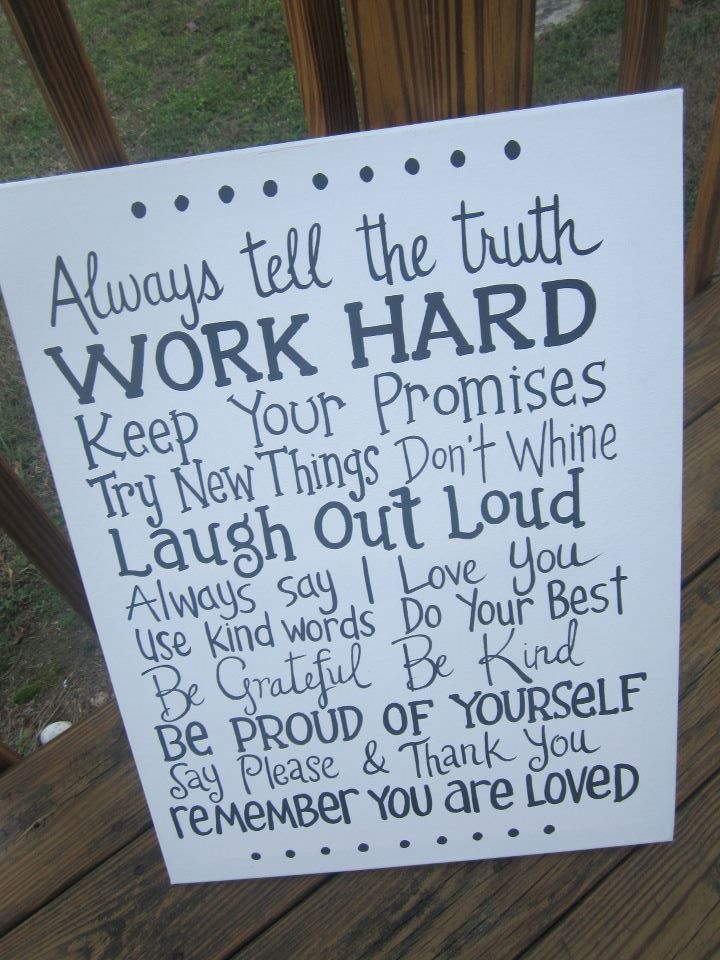 Always tell the truth
WORK HARD
Keep Your Promises
Try New Things Don't Whine
Laugh Out Loud
Always say I Love You
Use kind words Do Your Best
Be Grateful Be Kind
Be PROUD OF YOURSeLF
Say Please & Thank You
reMeMBer YOU are LOVeD